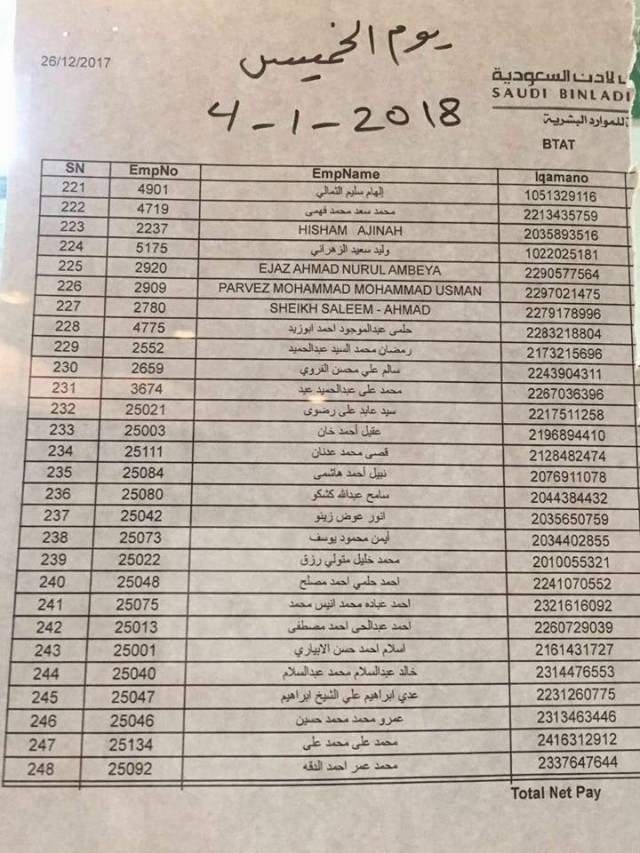 يوم الخميس
26/12/2017
لادن السعودية
SAUDI BINLADI
4-1-2018
للموارد البشرية
BTAT
SN EmpNo EmpName Iqamano
221 4901 إلهام سليم الثمالي 1051329116
222 4719 محمد سعد محمد فهمى 2213435759
223 2237 HISHAM AJINAH 2035893516
224 5175 وليد سعيد الزهراني 1022025181
225 2920 EJAZ AHMAD NURUL AMBEYA 2290577564
226 2909 PARVEZ MOHAMMAD MOHAMMAD USMAN 2297021475
227 2780 SHEIKH SALEEM - AHMAD 2279178996
228 4775 حلمى عبدالموجود احمد ابوزيد 2283218804
229 2552 رمضان محمد السيد عبدالحميد 2173215696
230 2659 سالم علي محسن القروي 2243904311
231 3674 محمد على عبدالحميد عيد 2267036396
232 25021 سيد عابد على رضوى 2217511258
233 25003 عقيل أحمد خان 2196894410
234 25111 قصى محمد عدنان 2128482474
235 25084 نبيل أحمد هاشمى 2076911078
236 25080 سامح عبدالله كشكو 2044384432
237 25042 انور عوض زينو 2035650759
238 25073 أيمن محمود يوسف 2034402855
239 25022 محمد خليل متولي رزق 2010055321
240 25048 احمد حلمي احمد مصلح 2241070552
241 25075 احمد عباده محمد انيس محمد 2321616092
242 25013 احمد عبدالحى احمد مصطفى 2260729039
243 25001 اسلام احمد حسن الابياري 2161431727
244 25040 خالد عبدالسلام محمد عبدالسلام 2314476553
245 25047 عدي ابراهيم علي الشيخ ابراهيم 2231260775
246 25046 عمرو محمد محمد حسين 2313463446
247 25134 محمد على محمد على 2416312912
248 25092 محمد عمر احمد الدقه 2337647644
Total Net Pay